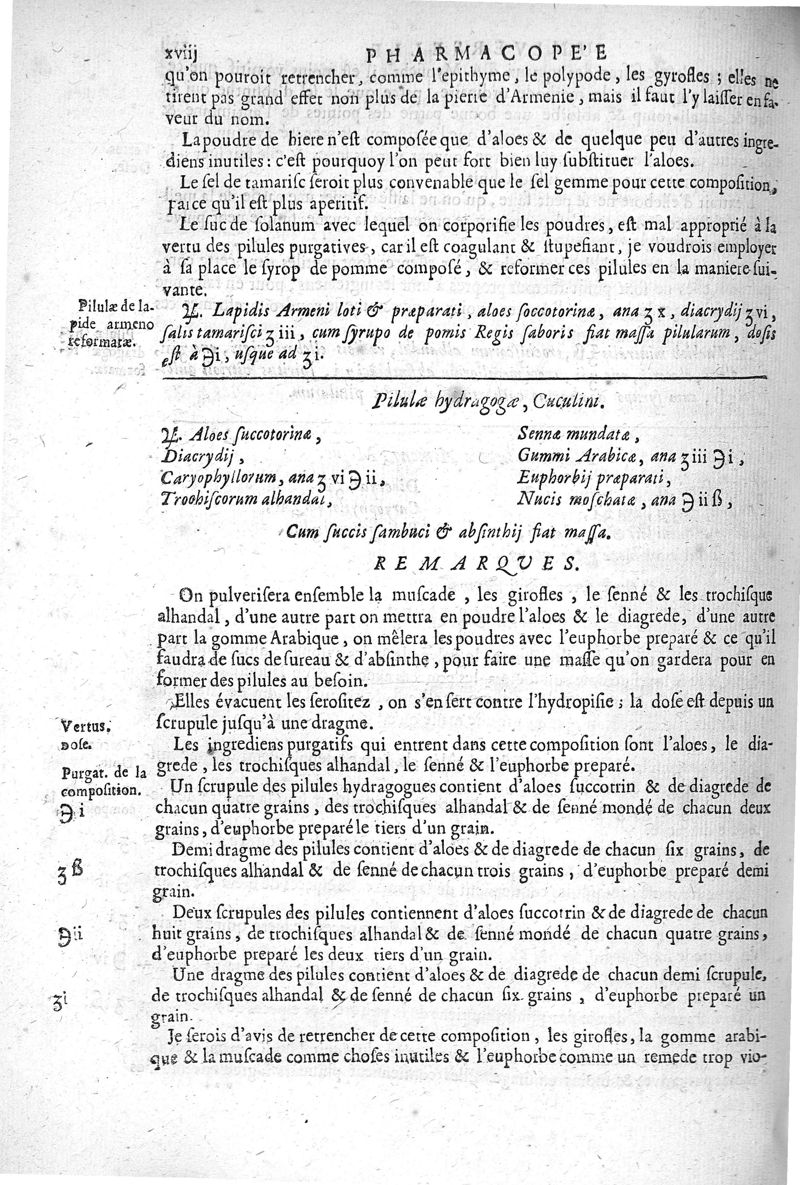 xviij PHARMACOPE'E
qu'on pouroit retrencher, comme l'epithyme, le polypode, les gyrofles ; elles ne
tirent pas grand effet non plus de la pierre d'Armenie, mais il faut l'y laiſſer en fa-
veur du nom.
La poudre de hiere n'eſt compoſée que d'aloes & de quelque peu d'autres ingre-
diens inutiles : c'eſt pourquoy l'on peut fort bien luy ſubſtituer l'aloes.
Le ſel de tamariſc ſeroit plus convenable que le ſel gemme pour cette compoſition,
parce qu'il eſt plus aperitif.
Le ſuc de ſolanum avec lequel on corporifie les poudres, eſt mal approprié à la
vertu des pilules purgatives, car il eſt coagulant & ſtupefiant, je voudrois employer
à ſa place le ſyrop de pomme compoſé, & reformer ces pilules en la maniere ſui-
vante.
Pilulæ de la-
pide armeno
reformatæ.
℞. Lapidis Armeni loti & præparati, aloes ſoccotorinæ, ana ʒ x, diacrydij ʒ vi,
ſalis tamariſci ʒ iii, cum ſyrupo de pomis Regis ſaboris fiat maſſa pilularum, doſis
eſt à ℈i, uſque ad ʒi.
Pilulæ hydragogæ, Cuculini.
℞. Aloes ſuccotorinæ,
Diacrydij,
Caryophyllorum, ana ʒ vi ℈ ii,
Trochiſcorum alhandal,
Sennæ mundatæ,
Gummi Arabicæ, ana ʒ iii ℈ i,
Euphorbij præparati,
Nucis moſchatæ, ana ℈ ii ß,
Cum ſuccis ſambuci & abſinthij fiat maſſa.
REMARQVES.
On pulveriſera enſemble la muſcade, les girofles, le ſenné & les trochiſque
alhandal, d'une autre part on mettra en poudre l'aloes & le diagrede, d'une autre
part la gomme Arabique, on mêlera les poudres avec l'euphorbe preparé & ce qu'il
faudra de ſucs de ſureau & d'abſinthe, pour faire une maſſe qu'on gardera pour en
former des pilules au beſoin.
Vertus.
Doſe.
Elles évacuent les ſeroſitez, on s'en ſert contre l'hydropiſie ; la doſe eſt depuis un
ſcrupule juſqu'à une dragme.
Purgat. de la
compoſition.
Les ingrediens purgatifs qui entrent dans cette compoſition ſont l'aloes, le dia-
grede, les trochiſques alhandal, le ſenné & l'euphorbe preparé.
℈ i
Un ſcrupule des pilules hydragogues contient d'aloes ſuccotrin & de diagrede de
chacun quatre grains, des trochiſques alhandal & de ſenné mondé de chacun deux
grains, d'euphorbe preparé le tiers d'un grain.
ʒ ß
Demi dragme des pilules contient d'aloes & de diagrede de chacun ſix grains, de
trochiſques alhandal & de ſenné de chacun trois grains, d'euphorbe preparé demi
grain.
℈ii
Deux ſcrupules des pilules contiennent d'aloes ſuccotrin & de diagrede de chacun
huit grains, de trochiſques alhandal & de ſenné mondé de chacun quatre grains,
d'euphorbe preparé les deux tiers d'un grain.
ʒi
Une dragme des pilules contient d'aloes & de diagrede de chacun demi ſcrupule,
de trochiſques alhandal & de ſenné de chacun ſix grains, d'euphorbe preparé un
grain.
Je ſerois d'avis de retrencher de cette compoſition, les girofles, la gomme arabi-
que & la muſcade comme choſes inutiles & l'euphorbe comme un remede trop vio-